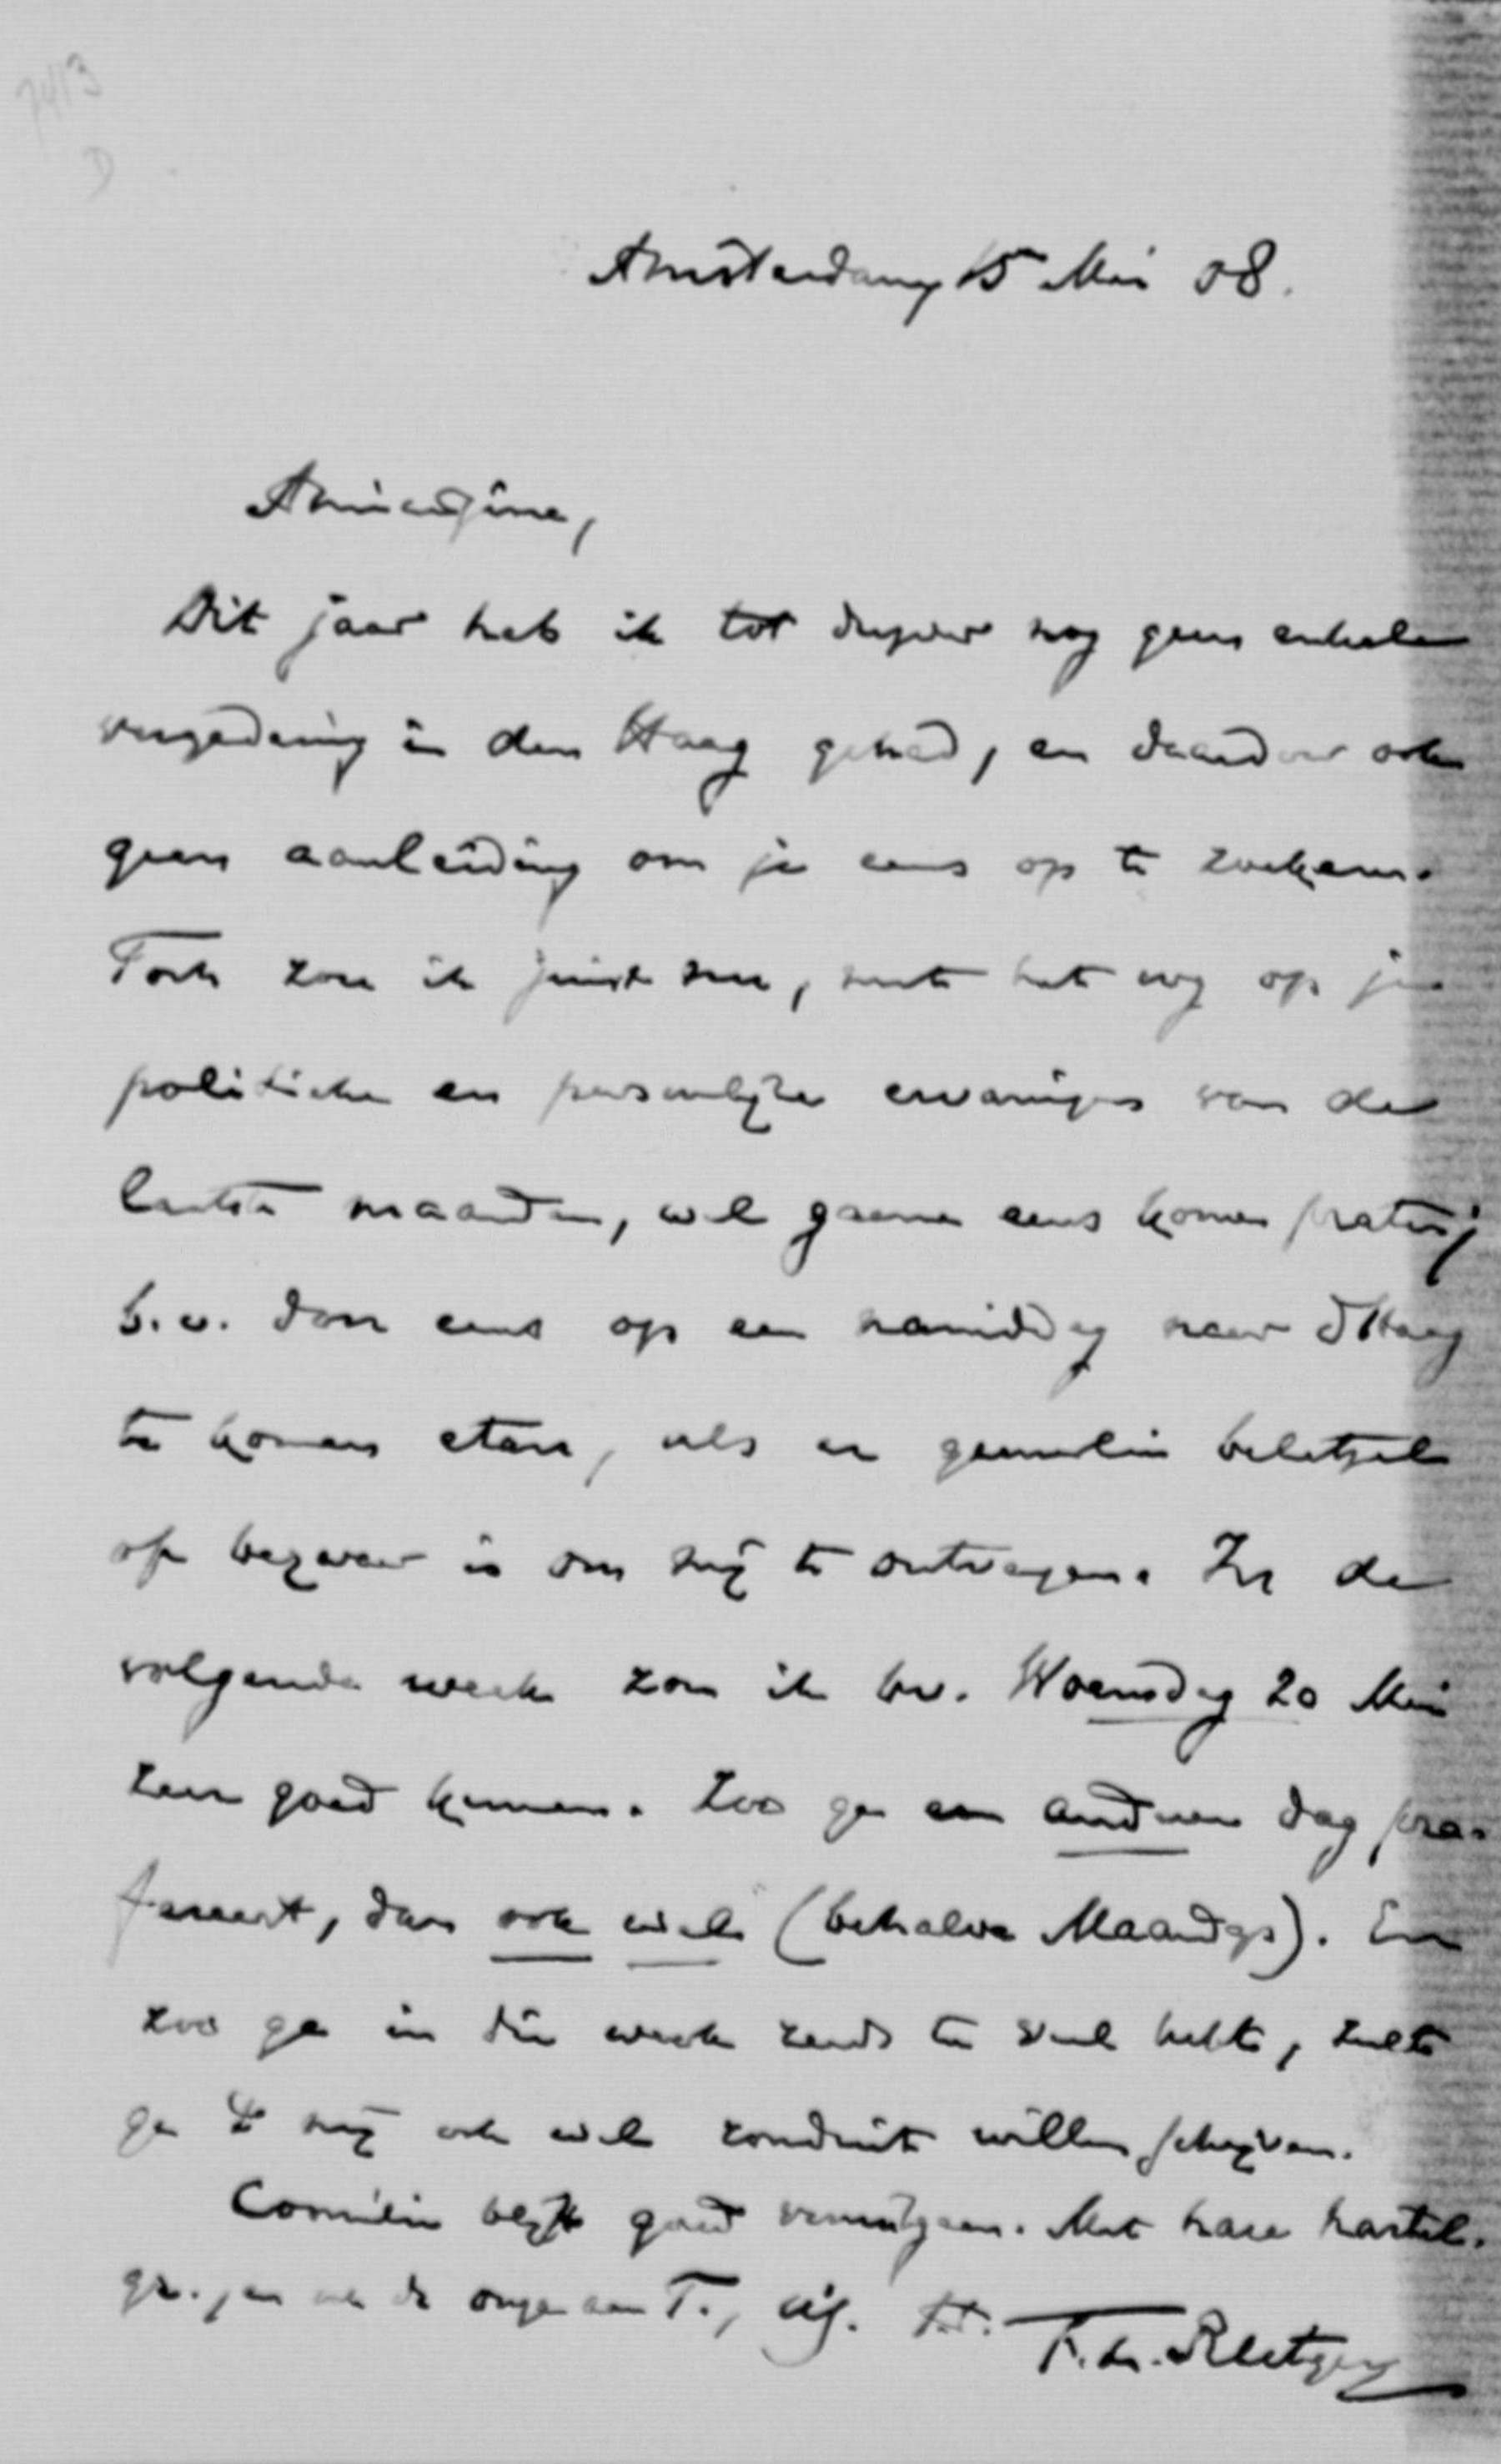 7413
D
Amsterdam, 15 Mei 08.
Amicissime,
Dit jaar heb ik tot dusver nog geen enkele
vergadering in den Haag gehad, en daardoor ook
geen aanleiding om je eens op te zoeken.
Toch zou ik juist nu, met het oog op je
politieke en persoonlijke ervaringen van de
laatste maanden, wel gaarne eens komen praten;
b.v. door eens op een namiddag naar d Haag
te komen eten, als er geenerlei beletsel
of bezwaar is om mij te ontvangen. In de
volgende week zou ik bv. Woensdag 20 Mei
zeer goed kunnen. Zoo ge een anderen dag pre-
fereert, dan ook wel (behalve Maandgs). En
zoo ge in die week reeds te veel hebt, zult
ge mij ook wel ronduit willen schrijven.
Cornélie blijft goed vooruitgaan. Met hare hartel.
gr., en de onze aan T., t.t.